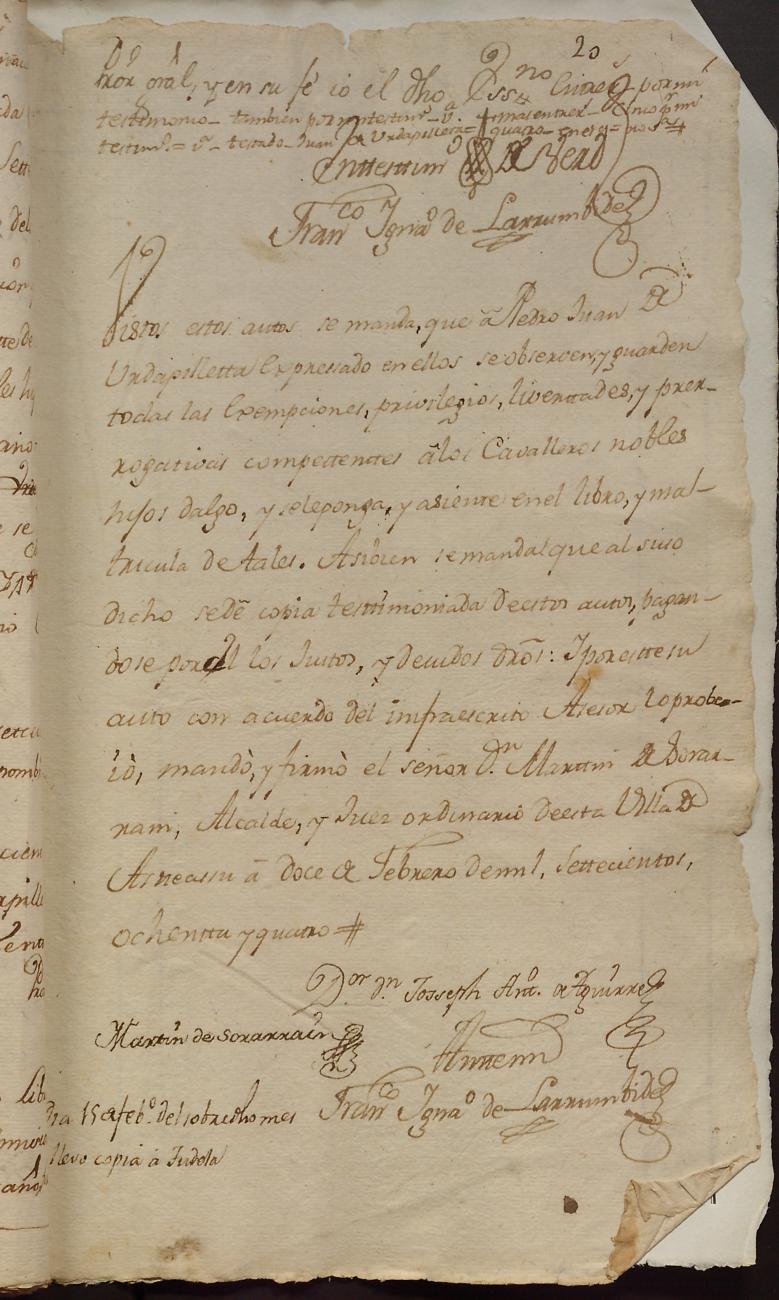 20
tror gral, y en su fé io el dho Essno Curre por mi
testimonio _ tambien por mi testimo _ v.
testim.
Enttesttim de Verd
Franco Ignao de Larrumbide
Vistos estos autos se manda, que â Pedro Juan de
Urdapilletta Expressado en ellos se observen, y guarden
todas las Exempciones, privilegios, liverttades, y prer-
rogativas competenttes â los Cavalleros nobles
hijos dalgo, y se le ponga, y asiente en el libro, y mat-
tricula de tales. Asi bien se manda que al suso
dicho se dê copia testtimoniada de estos autos, pagan-
dose por el los Justos, y devidos dros: I por estte su
auto con acuerdo del imfraescrito Asesor lo probe-
iò, mandò, y firmò el señor Dn. Marttin de Sorar-
rain, Alcalde, y Juez ordinario de esta Villa de
Asteassu â doce de Febrero de mil, Settecientos,
ochentta y quatro #
Dor dn Josseph Anto. de Aguirre
Martin de Sorarrain
Antemi
Franco Ignao de Larrumbide
Dia 15 de febo. del sobredho mes
llevo copia â Tudela